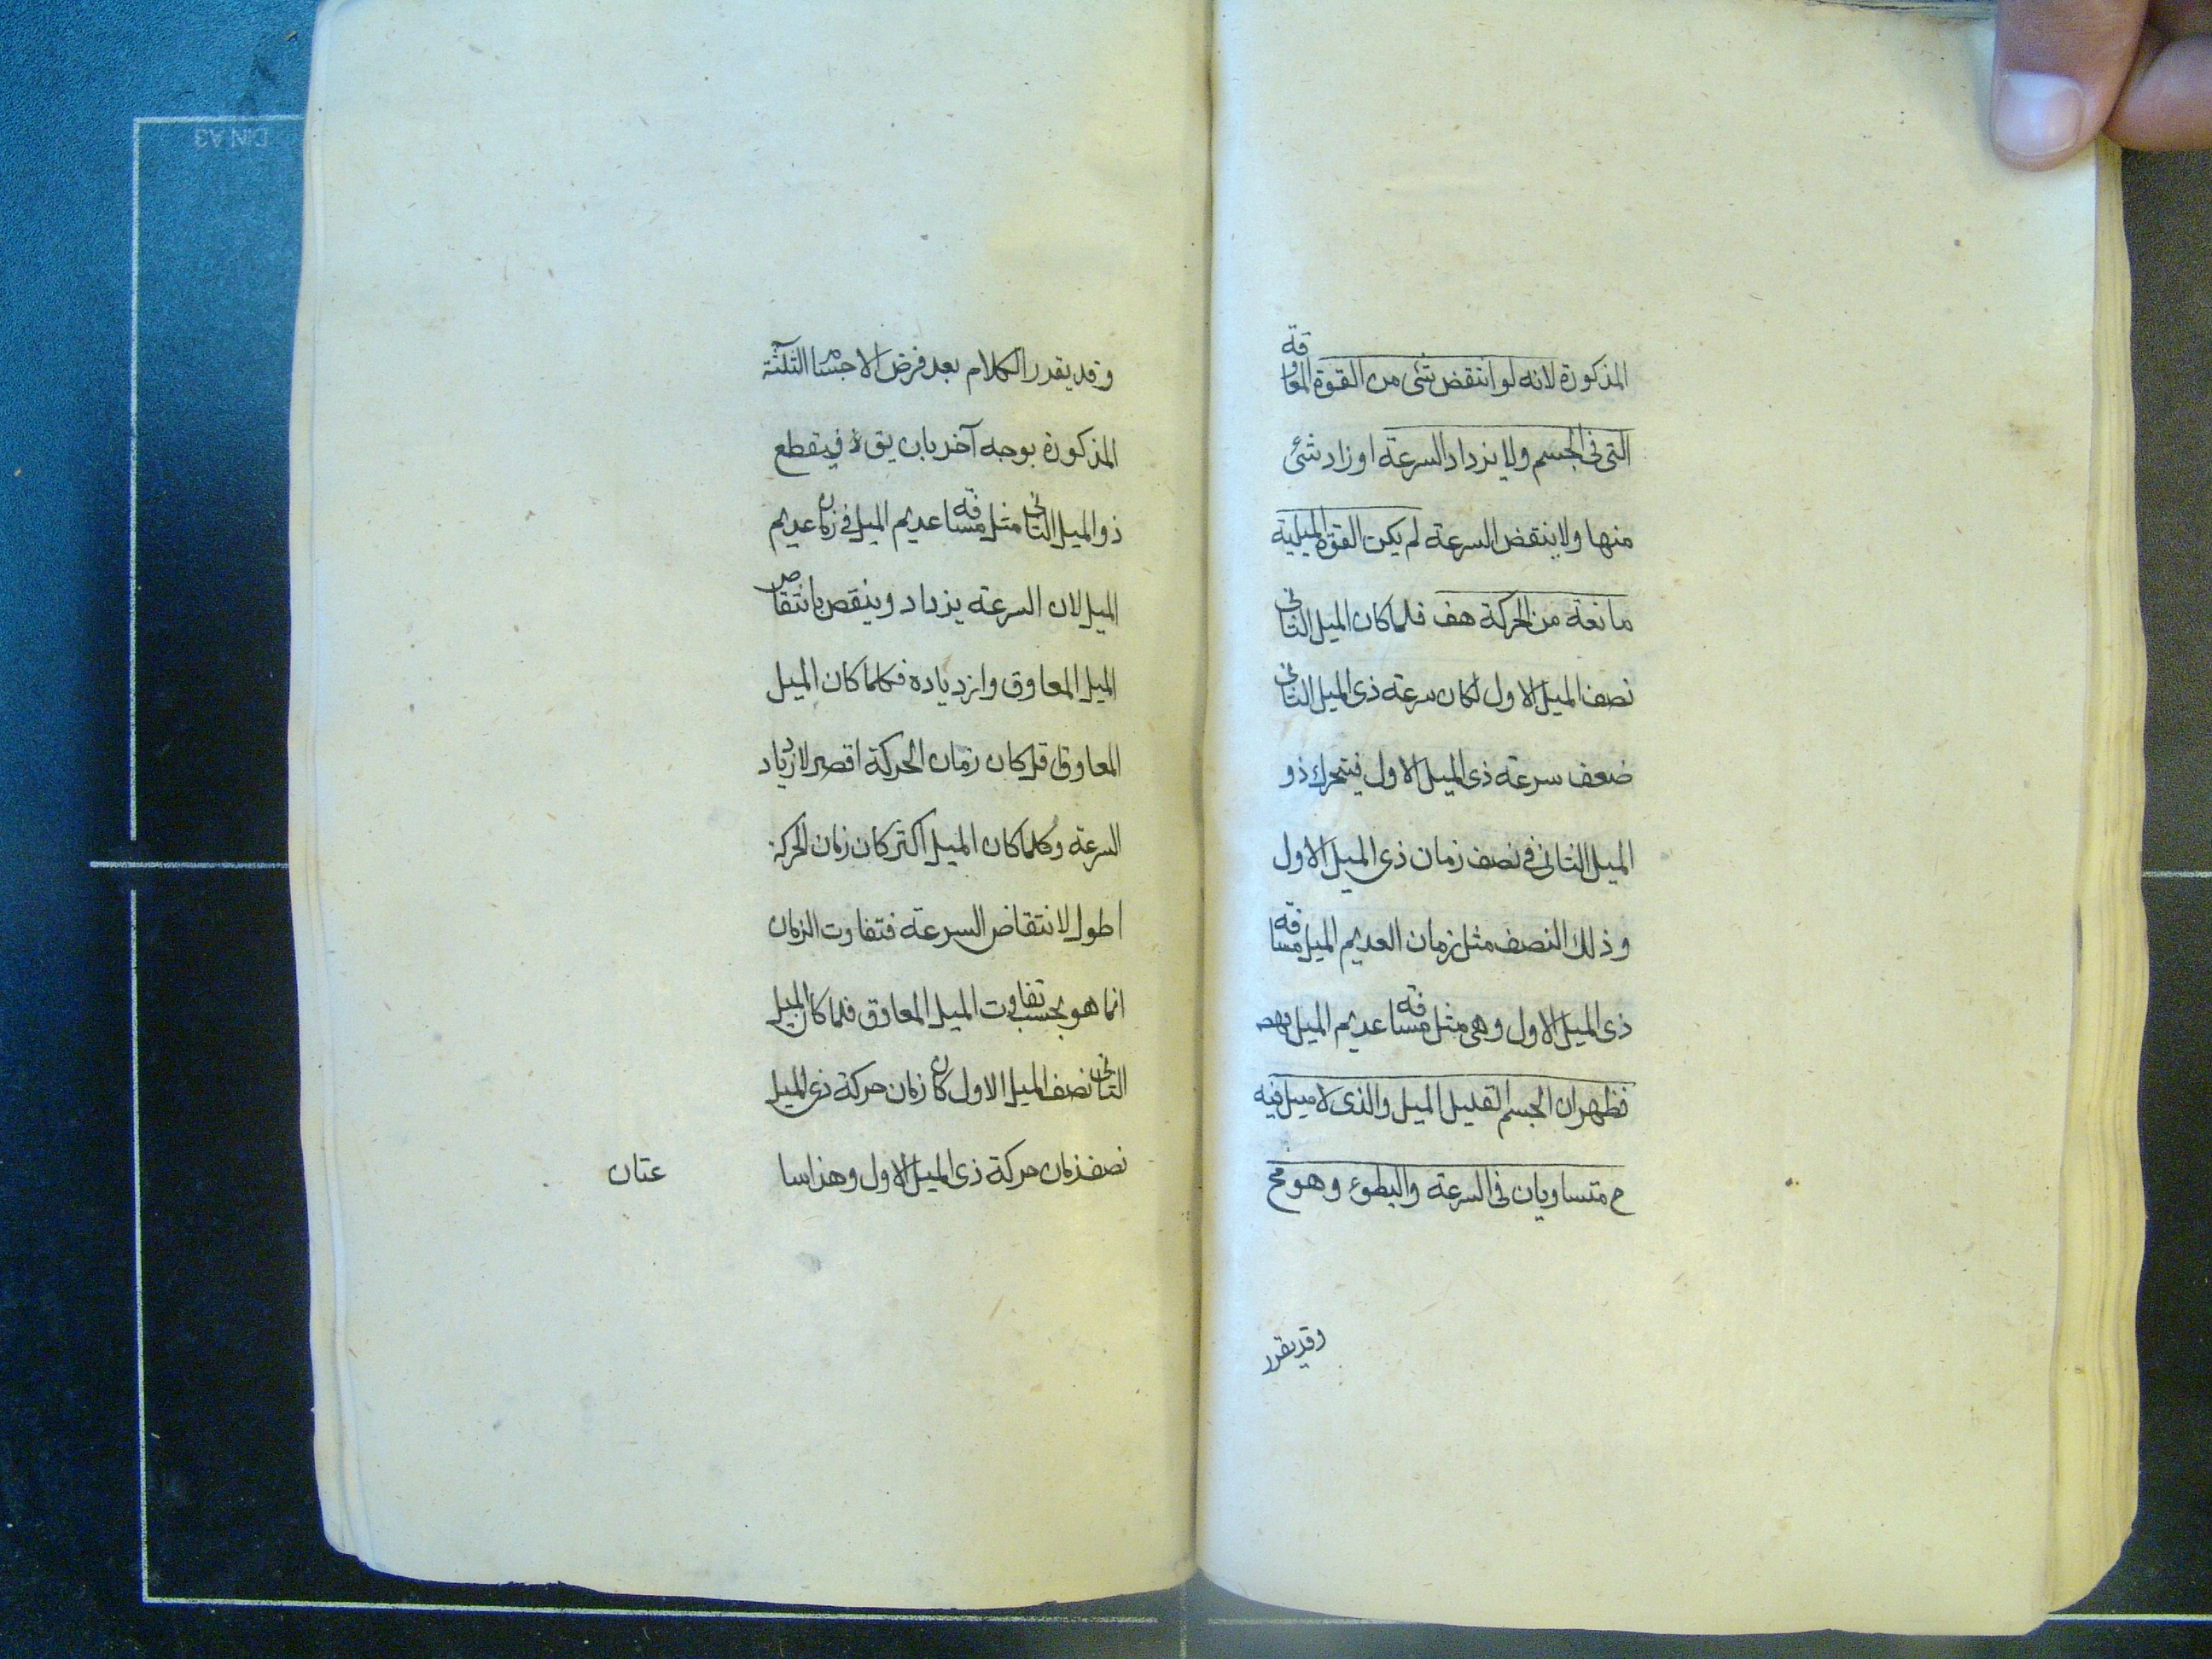 المذكورة لانه لو انتقض شئ من القوة المعاوقة
التى فى الجسم ولا يزداد السرعة او زاد شئ
منها ولا ينتقض السرعة لم يكن القوة الميلية
مانعة من الحركة هف فلما كان الميل الثانى
نصف الميل الاول لكان سرعة ذى الميل الثانى
ضعف سرعة ذى الميل الاول فيتحرك ذو
الميل الثانى فى نصف زمان ذى الميل الاول
وذلك النصف مثل زمان العديم الميل مسافة
ذى الميل الاول وهى مثل مسافة عديم الميل
فظهر ان الجسم القليل الميل والذى لا ميل فيه
ح متساويان فى السرعة والبطوء وهو مح
وقد يقرر
وقد يقرر الكلام بعد فرض الاجسام الثلثة
المذكورة بوجه آخر بان يق فيقطع
ذو الميل الثانى مثل مسافة عديم الميل فى زمان عديم
الميل لان السرعة يزداد وينقص بانتقاص
الميل المعاوق وازدياده فكلما كان الميل
المعاوق قل كان زمان الحركة اقصر لازدياد
السرعة وكلما كان الميل اكثر كان زمان الحركة
اطول لانتقاض السرعة فتفاوت الزمان
انما هو بحسب تفاوت الميل المعاوق فلما كان الميل
الثانى نصف الميل الاول كان زمان حركة ذى الميل
نصف زمان حركة ذى الميل الاول وهذا سا
عتان